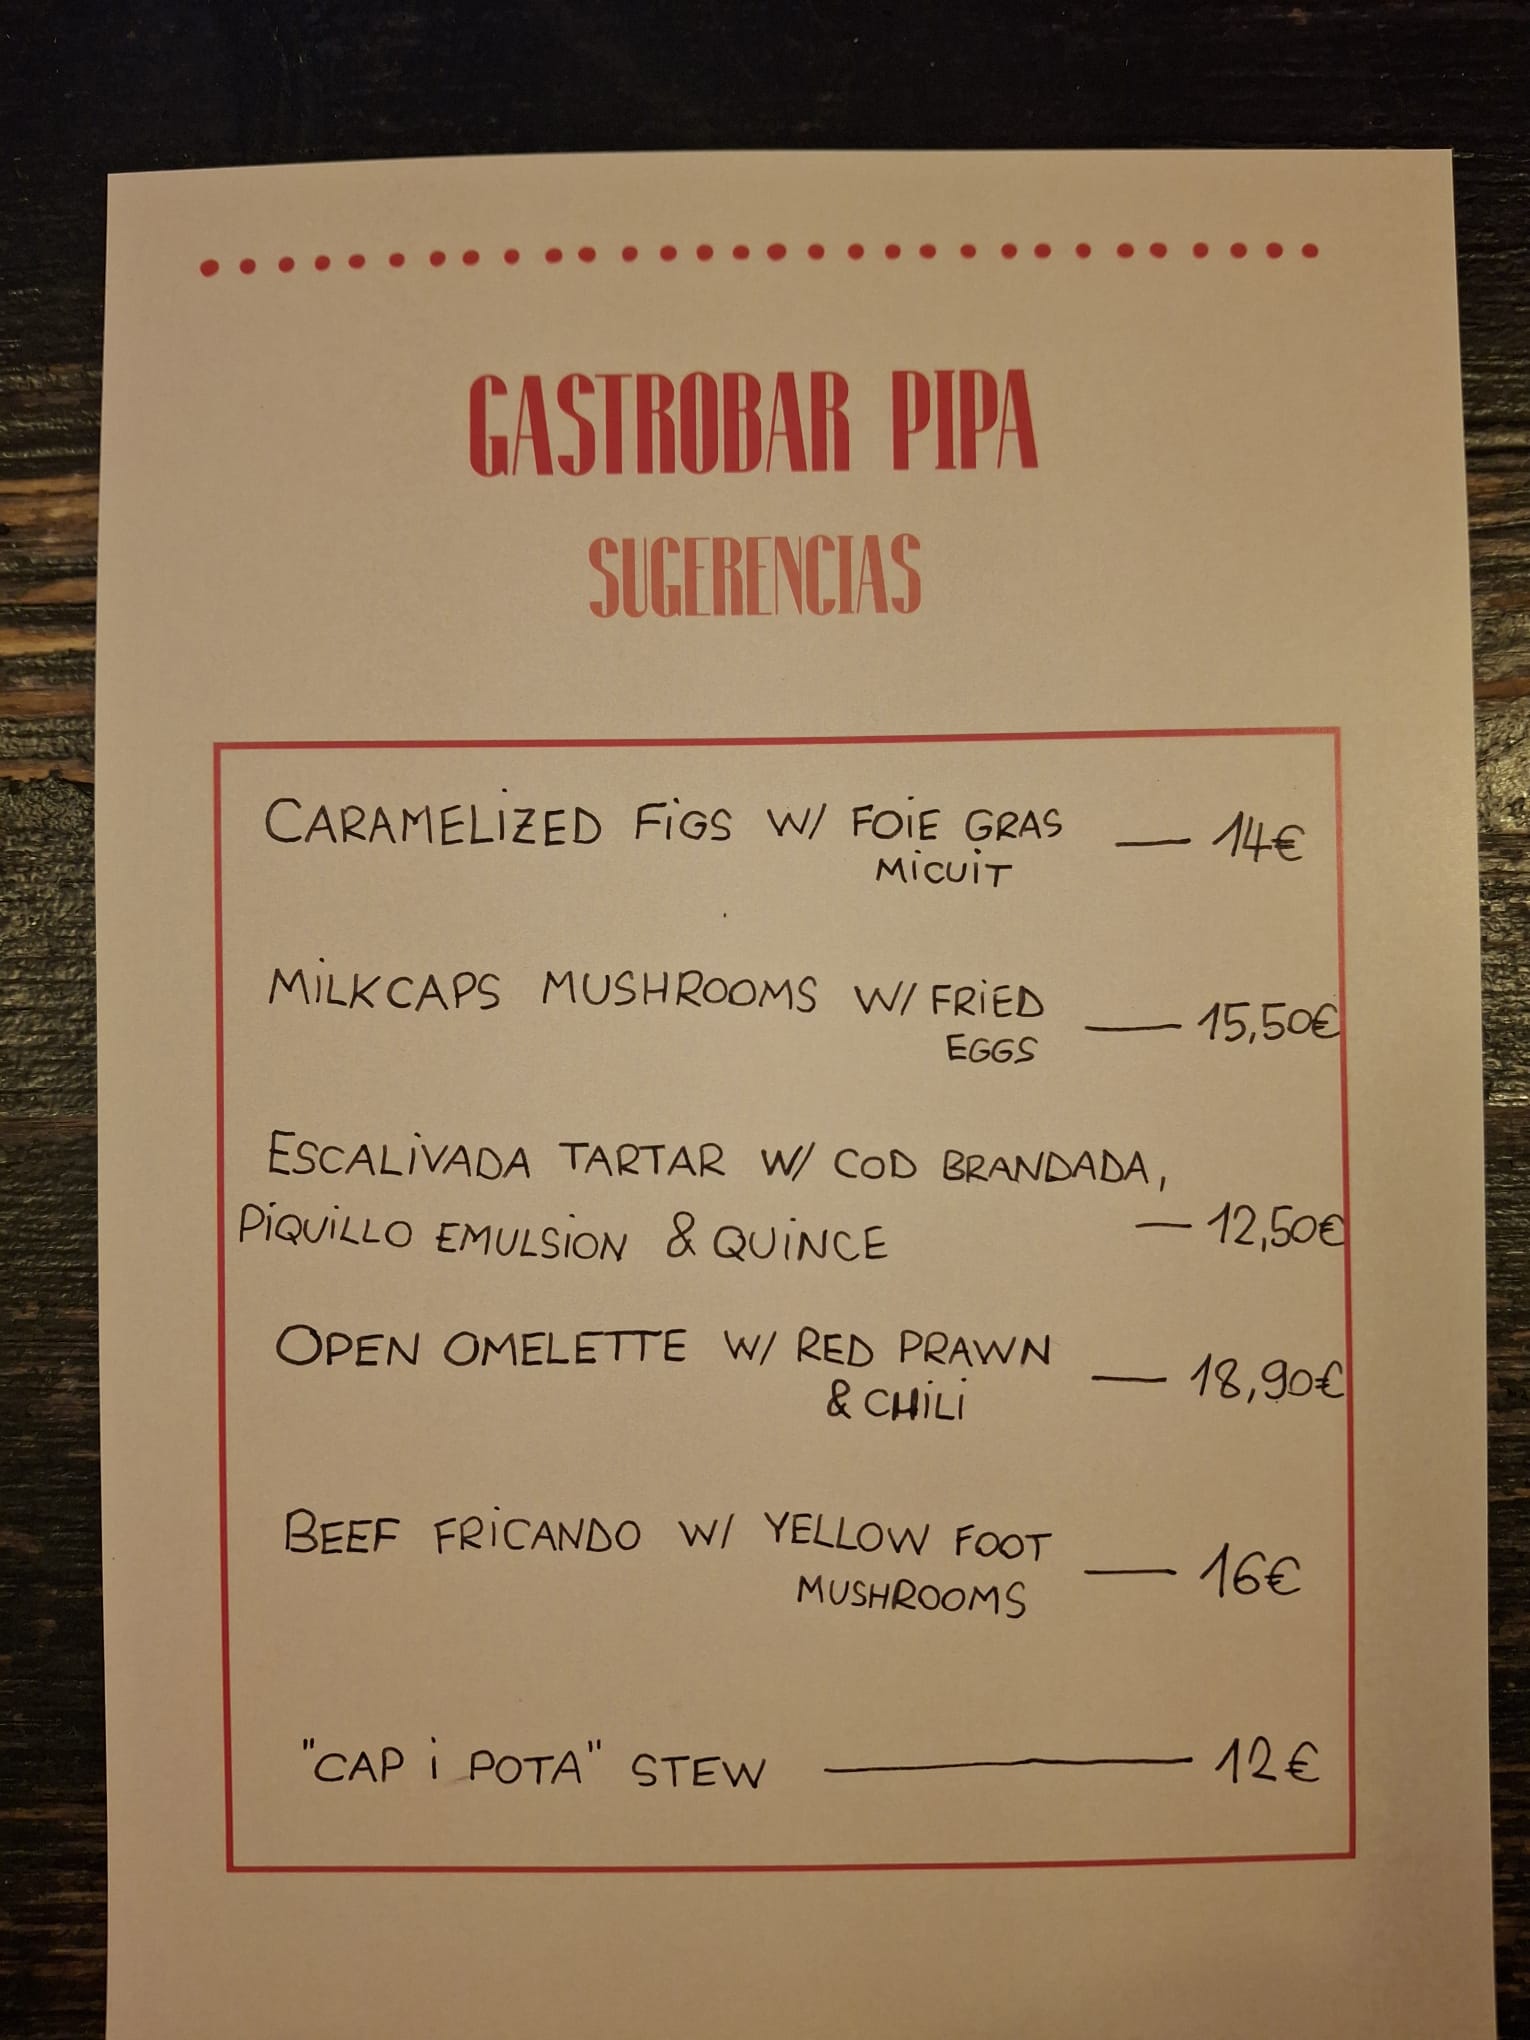 GASTROBAR PIPA
SUGERENCIAS
CARAMELIZED FIGS W/ FOIE GRAS — 14€
MICUIT
MILKCAPS MUSHROOMS W/ FRIED — 15,50€
EGGS
ESCALIVADA TARTAR W/ COD BRANDADA,
PIQUILLO EMULSION & QUINCE — 12,50€
OPEN OMELETTE W/ RED PRAWN — 18,90€
& CHILI
BEEF FRICANDO W/ YELLOW FOOT — 16€
MUSHROOMS
"CAP i POTA" STEW — 12€